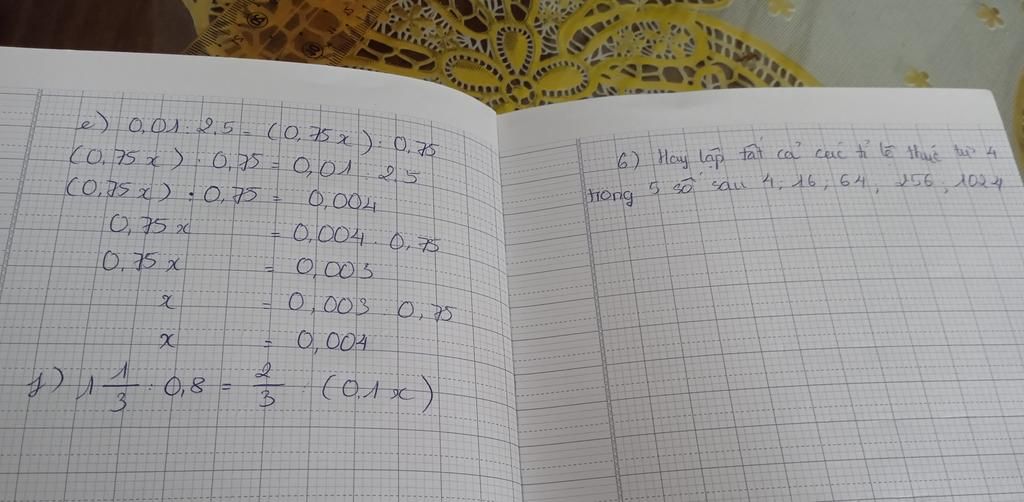 e) 0,01 : 2,5 = (0,75x) : 0,75
(0,75x) : 0,75 = 0,01 : 2,5
(0,75x) : 0,75 = 0,004
0,75x = 0,004 . 0,75
0,75x = 0,003
x = 0,003 : 0,75
x = 0,004
f) 1 1/3 : 0,8 = 2/3 : (0,1x)
6) Hãy lập tất cả các tỉ lệ thức từ 4
trong 5 số sau 4, 16, 64, 256, 1024